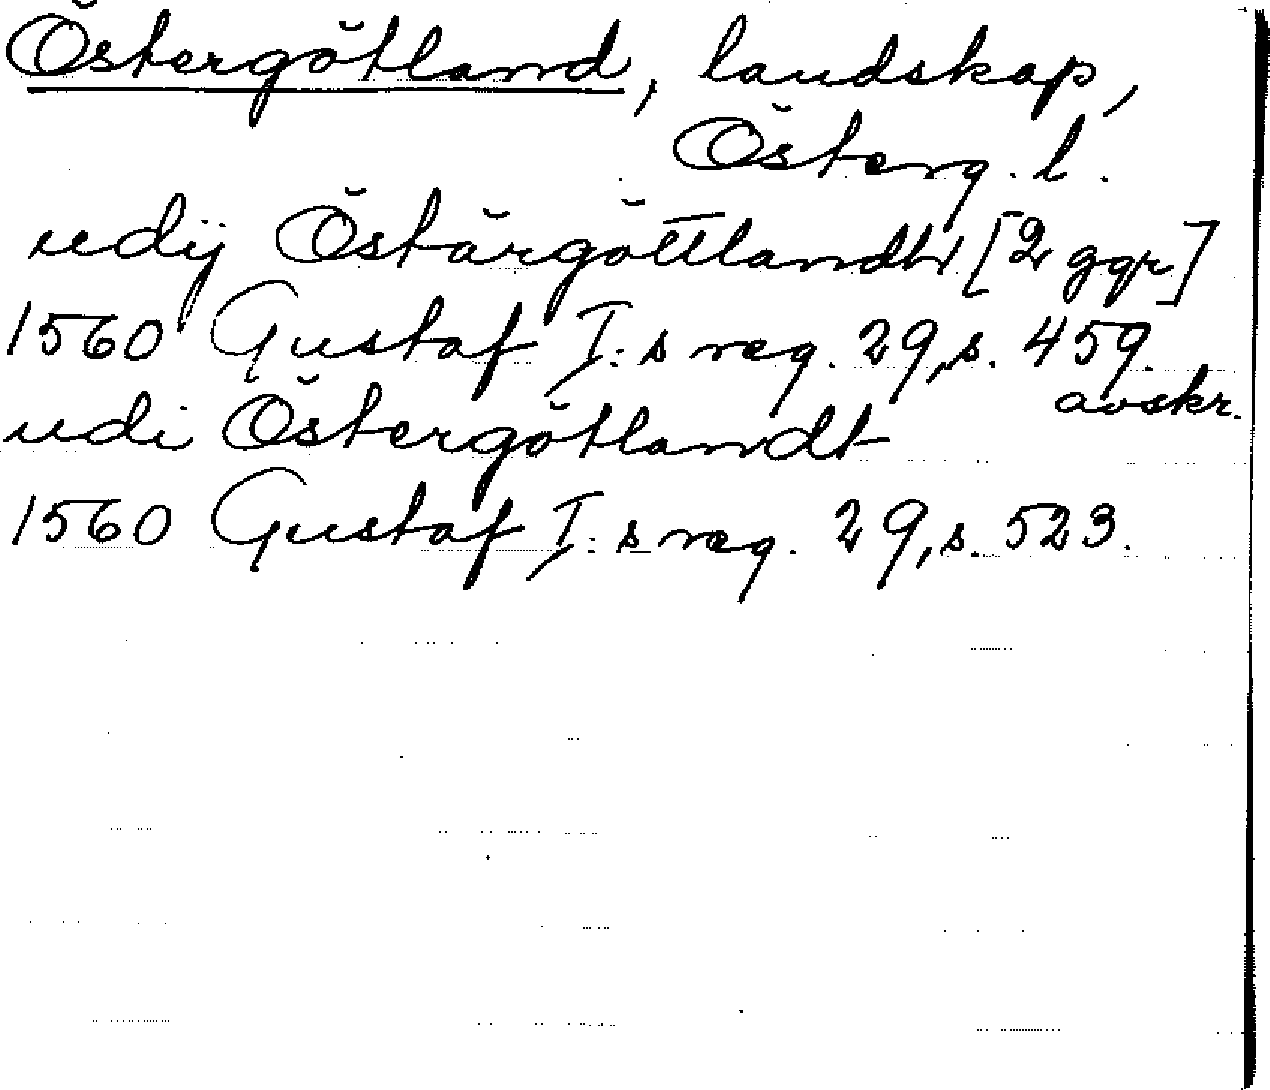 Östergötland, landskap,
Österg. l.
udij Östärgöttlandt [2 ggr]
1560 Gustaf I:s reg. 29, s. 459.
avskr.
udi Östergötlandt
1560 Gustaf I:s reg. 29, s. 523.